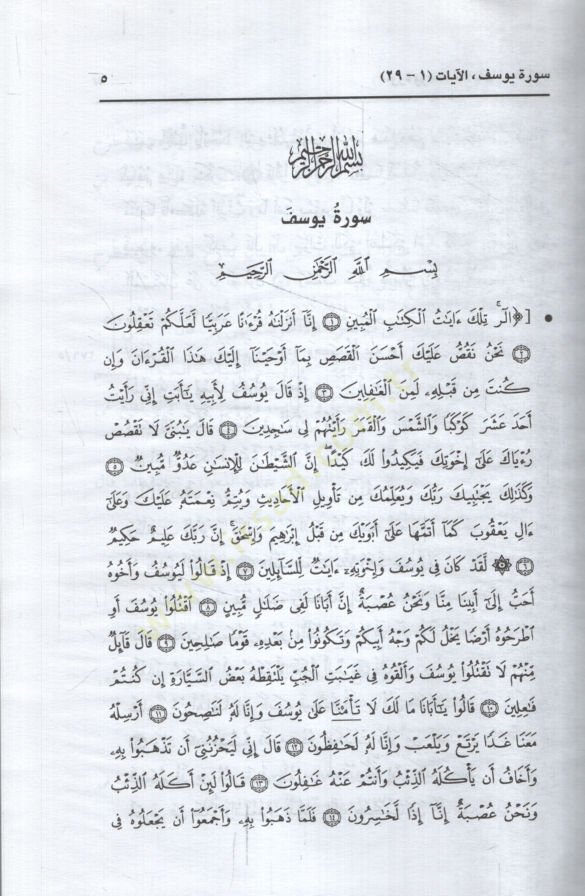 سورة يوسف ، الآيات (١ - ٢٩) ٥
بسم الله الرحمن الرحيم
سورةُ يوسفَ
بِسْمِ اللَّهِ الرَّحْمَٰنِ الرَّحِيمِ
• [﴿الٓرۚ تِلْكَ ءَايَٰتُ ٱلْكِتَٰبِ ٱلْمُبِينِ ﴿١﴾ إِنَّآ أَنزَلْنَٰهُ قُرْءَٰنًا عَرَبِيًّا لَّعَلَّكُمْ تَعْقِلُونَ
﴿٢﴾ نَحْنُ نَقُصُّ عَلَيْكَ أَحْسَنَ ٱلْقَصَصِ بِمَآ أَوْحَيْنَآ إِلَيْكَ هَٰذَا ٱلْقُرْءَانَ وَإِن
كُنتَ مِن قَبْلِهِۦ لَمِنَ ٱلْغَٰفِلِينَ ﴿٣﴾ إِذْ قَالَ يُوسُفُ لِأَبِيهِ يَٰٓأَبَتِ إِنِّى رَأَيْتُ
أَحَدَ عَشَرَ كَوْكَبًا وَٱلشَّمْسَ وَٱلْقَمَرَ رَأَيْتُهُمْ لِى سَٰجِدِينَ ﴿٤﴾ قَالَ يَٰبُنَىَّ لَا تَقْصُصْ
رُءْيَاكَ عَلَىٰٓ إِخْوَتِكَ فَيَكِيدُوا۟ لَكَ كَيْدًاۖ إِنَّ ٱلشَّيْطَٰنَ لِلْإِنسَٰنِ عَدُوٌّ مُّبِينٌ ﴿٥﴾
وَكَذَٰلِكَ يَجْتَبِيكَ رَبُّكَ وَيُعَلِّمُكَ مِن تَأْوِيلِ ٱلْأَحَادِيثِ وَيُتِمُّ نِعْمَتَهُۥ عَلَيْكَ وَعَلَىٰٓ
ءَالِ يَعْقُوبَ كَمَآ أَتَمَّهَا عَلَىٰٓ أَبَوَيْكَ مِن قَبْلُ إِبْرَٰهِيمَ وَإِسْحَٰقَۚ إِنَّ رَبَّكَ عَلِيمٌ حَكِيمٌ
﴿٦﴾ ۞ لَّقَدْ كَانَ فِى يُوسُفَ وَإِخْوَتِهِۦٓ ءَايَٰتٌ لِّلسَّآئِلِينَ ﴿٧﴾ إِذْ قَالُوا۟ لَيُوسُفُ وَأَخُوهُ
أَحَبُّ إِلَىٰٓ أَبِينَا مِنَّا وَنَحْنُ عُصْبَةٌ إِنَّ أَبَانَا لَفِى ضَلَٰلٍ مُّبِينٍ ﴿٨﴾ ٱقْتُلُوا۟ يُوسُفَ أَوِ
ٱطْرَحُوهُ أَرْضًا يَخْلُ لَكُمْ وَجْهُ أَبِيكُمْ وَتَكُونُوا۟ مِنۢ بَعْدِهِۦ قَوْمًا صَٰلِحِينَ ﴿٩﴾ قَالَ قَآئِلٌ
مِّنْهُمْ لَا تَقْتُلُوا۟ يُوسُفَ وَأَلْقُوهُ فِى غَيَٰبَتِ ٱلْجُبِّ يَلْتَقِطْهُ بَعْضُ ٱلسَّيَّارَةِ إِن كُنتُمْ
فَٰعِلِينَ ﴿١٠﴾ قَالُوا۟ يَٰٓأَبَانَا مَا لَكَ لَا تَأْمَ۫نَّا عَلَىٰ يُوسُفَ وَإِنَّا لَهُۥ لَنَٰصِحُونَ ﴿١١﴾ أَرْسِلْهُ
مَعَنَا غَدًا يَرْتَعْ وَيَلْعَبْ وَإِنَّا لَهُۥ لَحَٰفِظُونَ ﴿١٢﴾ قَالَ إِنِّى لَيَحْزُنُنِىٓ أَن تَذْهَبُوا۟ بِهِۦ
وَأَخَافُ أَن يَأْكُلَهُ ٱلذِّئْبُ وَأَنتُمْ عَنْهُ غَٰفِلُونَ ﴿١٣﴾ قَالُوا۟ لَئِنْ أَكَلَهُ ٱلذِّئْبُ
وَنَحْنُ عُصْبَةٌ إِنَّآ إِذًا لَّخَٰسِرُونَ ﴿١٤﴾ فَلَمَّا ذَهَبُوا۟ بِهِۦ وَأَجْمَعُوٓا۟ أَن يَجْعَلُوهُ فِى